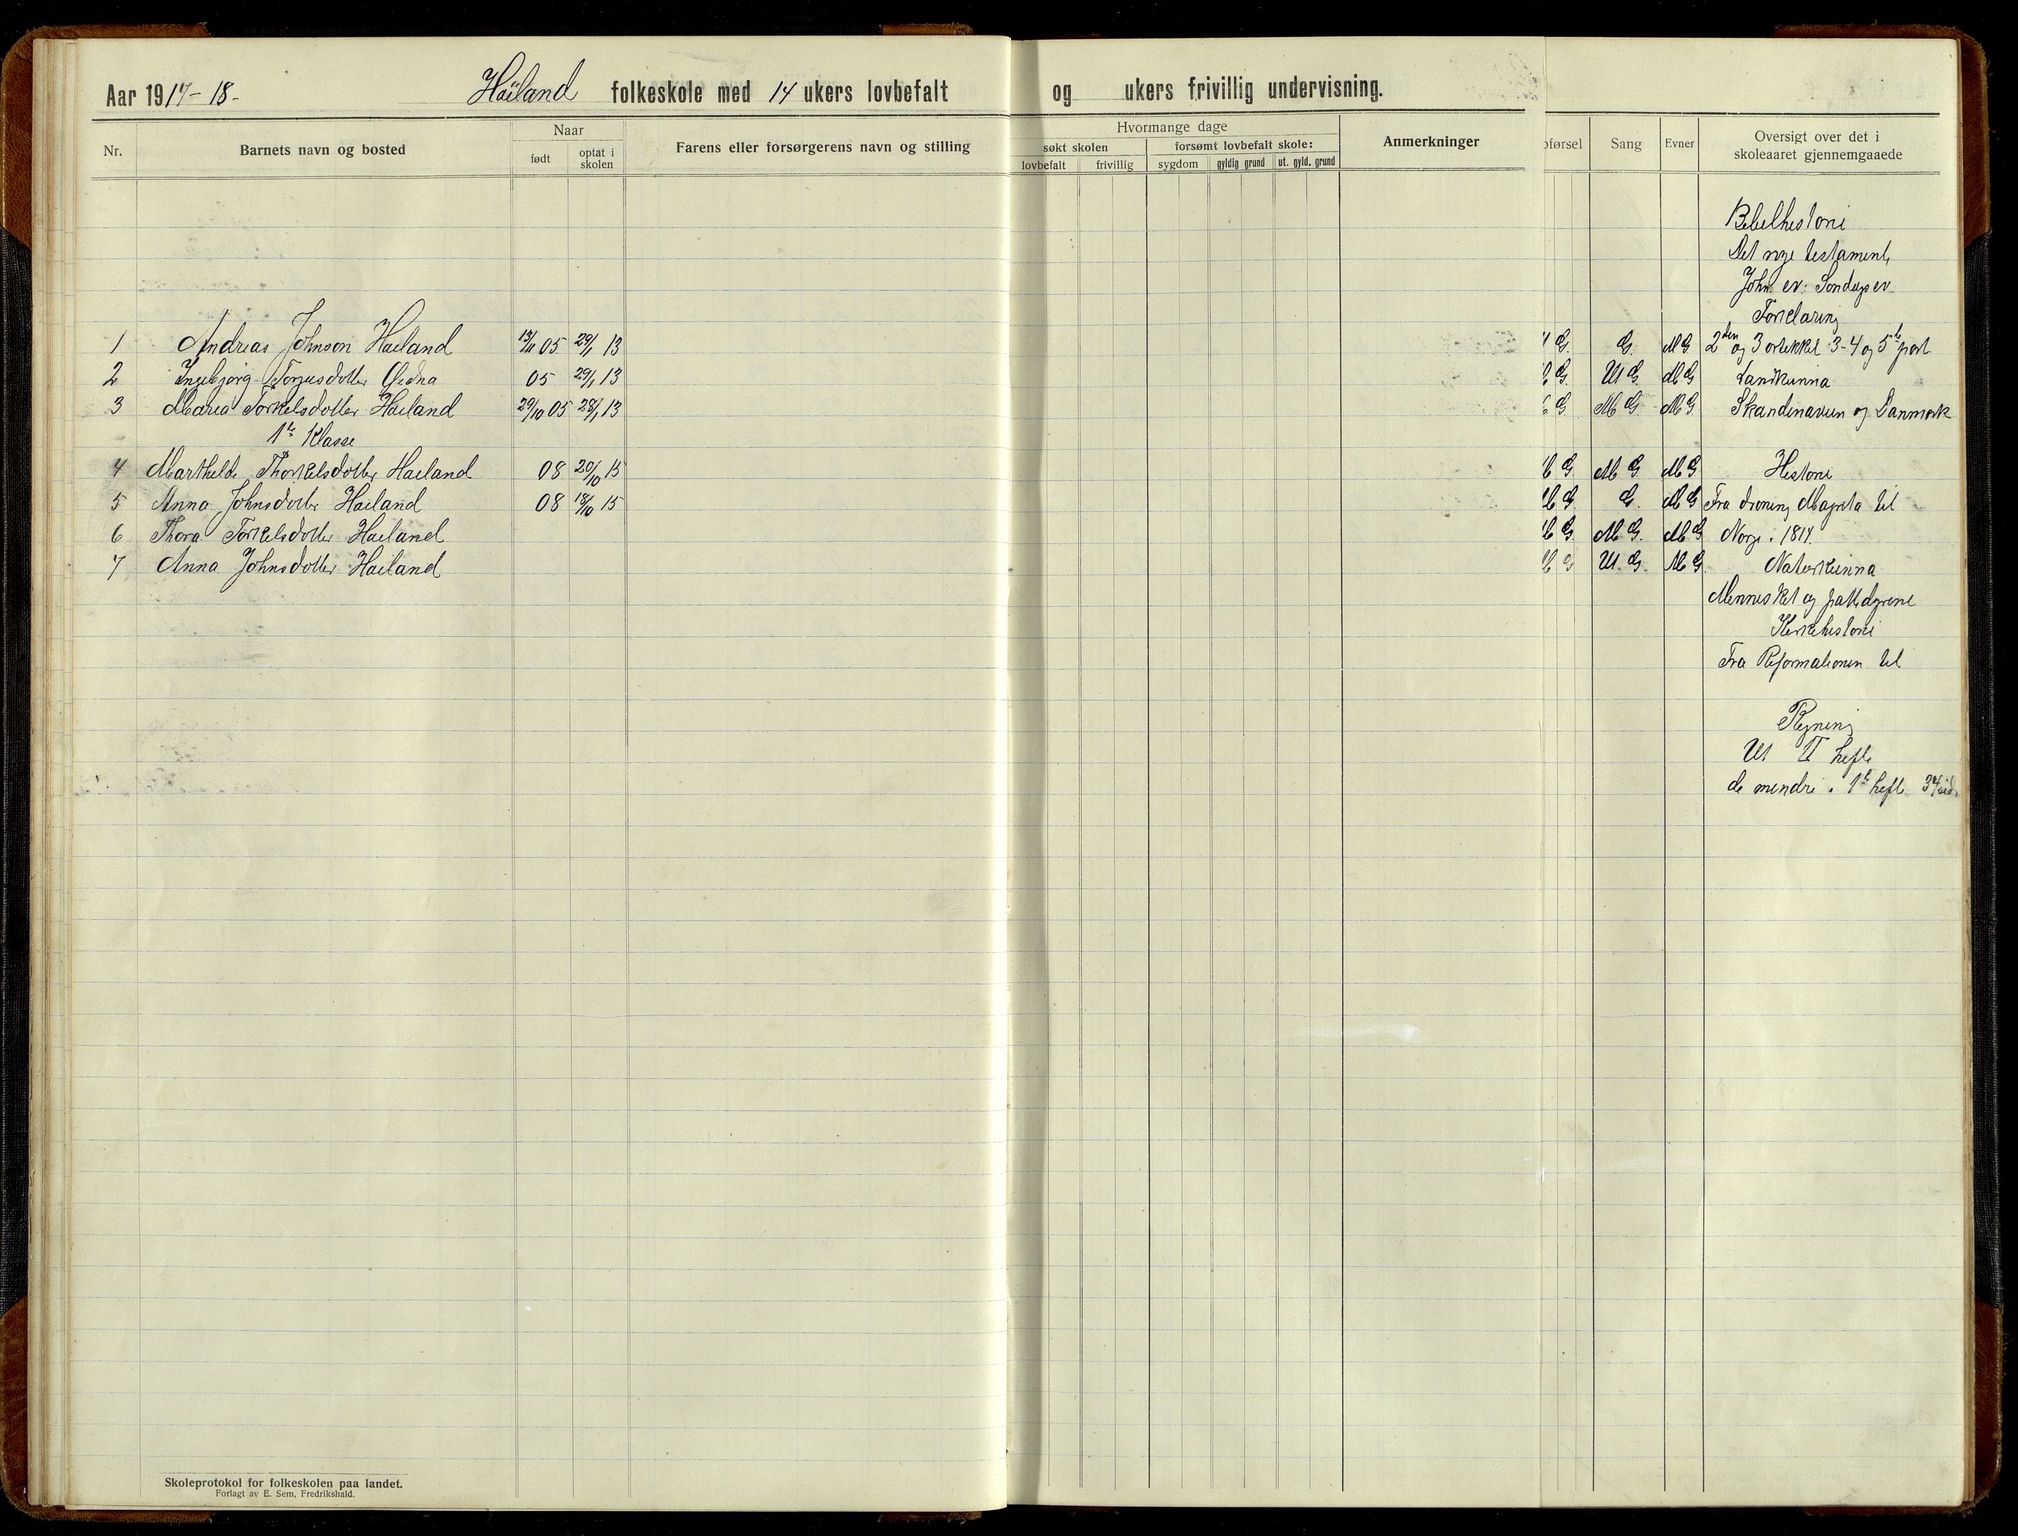 Aar 1917-18- Haïland folkeskole med 14 ukers lovbefalt og ukers frivillig undervisning.
Nr. Barnets navn og bosted Naar født optat i skolen Farens eller forsørgerens navn og stilling
Hvormange dage
søkt skolen forsømt lovbefalt skole:
lovbefalt frivillig sygdom gyldig grund ut. gyld. grund
Anmerkninger
Sang Evner Oversigt over det i skoleaaret gjennemgaaede
Bibelhistorie
Det nye testament,
Joh. ev. Søndags ev.
Forklaring
1 Andreas Johnson Haeland 13/11 05 29/1 13 G. G. MG 2den og 3 artikkel 3-4 og 5te part
2 Ingebjørg Torjusdotter Ødna 05 29/1 13 G. UG. MG Landkunna
3 Maria Torkelsdotter Haeland 29/10 05 28/1 13 G MG. MG. Skandinavien og Danmark
1te Klasse
4 Marthilde Thorkelsdotter Haeland 08 20/10 15 G MG MG Historie
5 Anna Johnsdotter Haeland 08 18/10 15 G G. MG Fra droning Magreta til
6 Thora Torkelsdotter Haeland G MG. MG Norge i 1814.
7 Anna Johnsdotter Haeland G UG. MG. Naturkunna
Mennesket og pattedyrene
Kirkehistorie
Fra Reformationen til
Regning
Ut II hefte
de mindre i 1te hefte
Skoleprotokol for folkeskolen paa landet.
Forlagt av E. Sem, Fredrikshald.